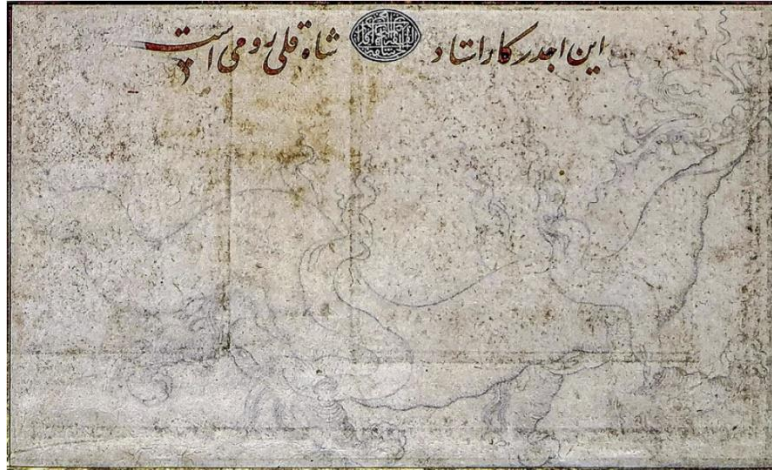 این اجدر کار استاد شاه قلی رومی است